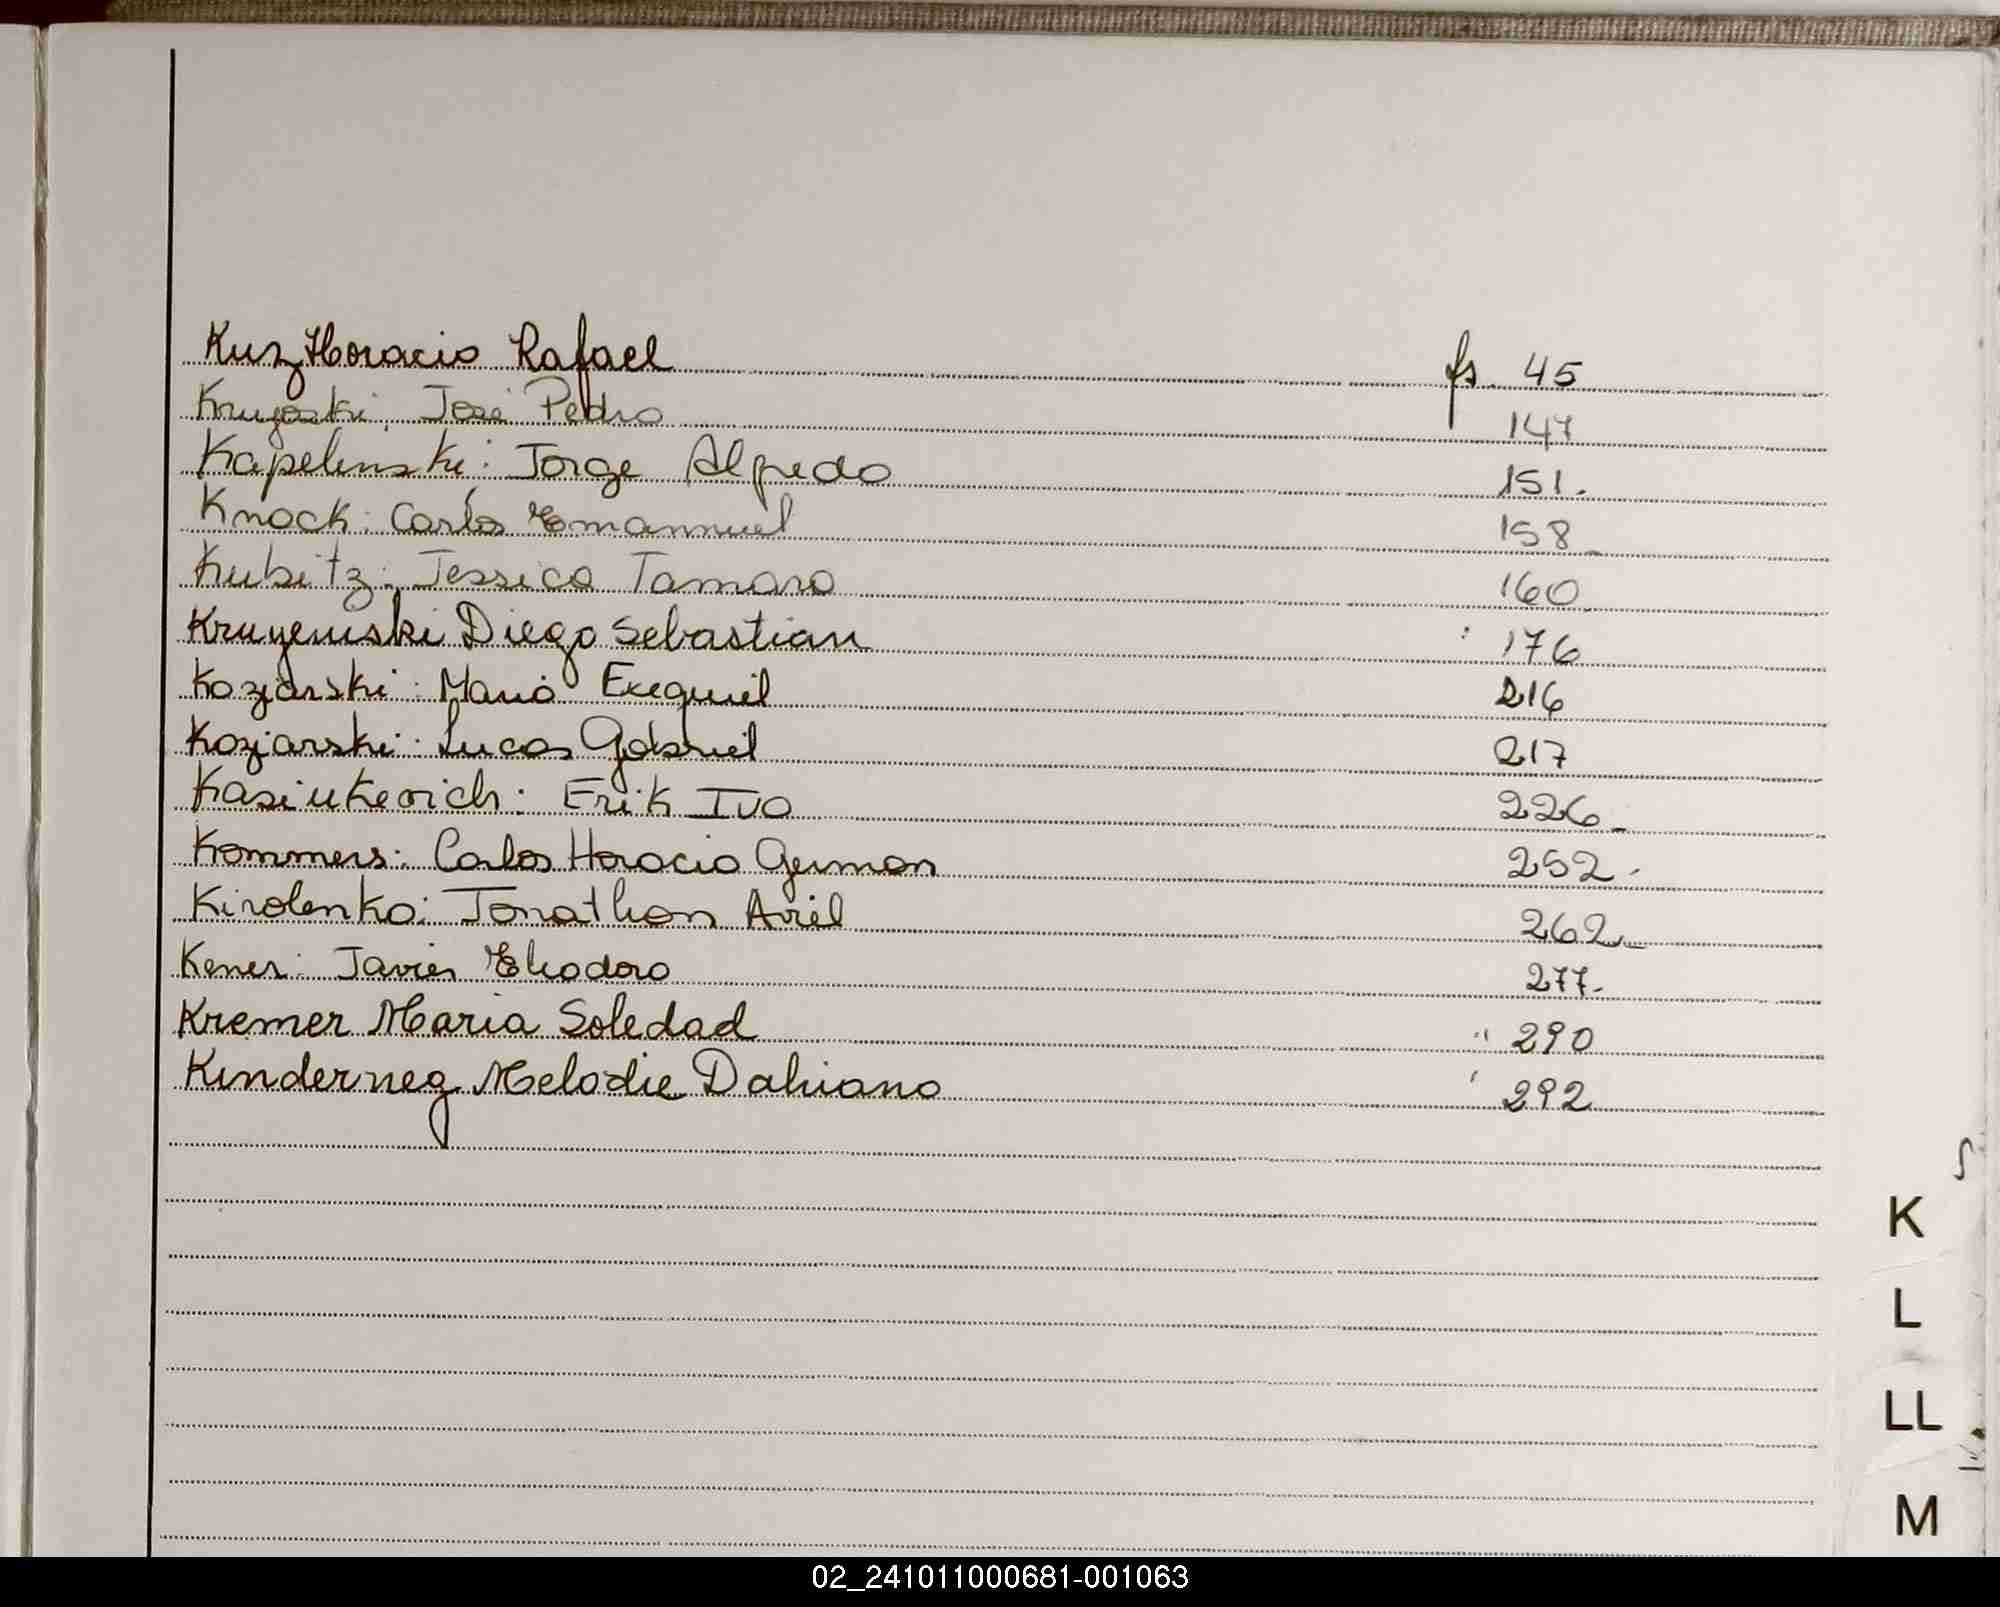 Kuz Horacio Rafael fs. 45
José Pedro 147
Kapelinski: Jorge Alfredo 151.
Knock: Carlos Emannuel 158
Kubitz: Jessica Tamara 160
Kruyeniski Diego Sebastian " 176
Koziarski: Mario Exequiel 216
Koziarski: Lucas Gabriel 217
Kasiukevich: Erik Ivo 226
Kommers: Carlos Horacio German 252.
Kirolenko: Jonathan Ariel 262
Kener: Javier Eliodoro 277.
Kremer Maria Soledad " 290
Kinderneg Melodie Dahiana ' 292
K
L
LL
M
02_241011000681-001063